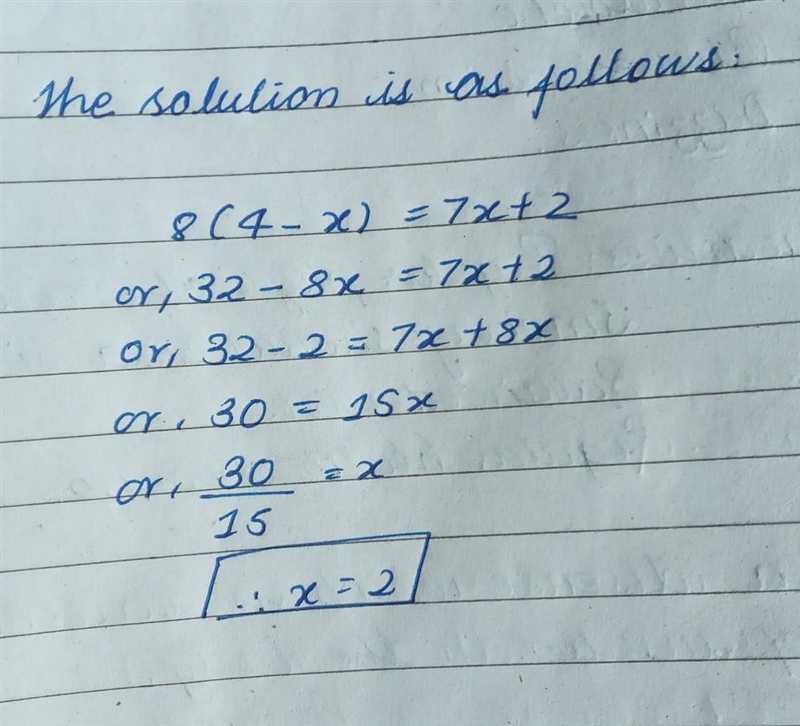 The solution is as follows:
8(4 - x) = 7x + 2
or, 32 - 8x = 7x + 2
or, 32 - 2 = 7x + 8x
or, 30 = 15x
or, 30/15 = x
∴ x = 2